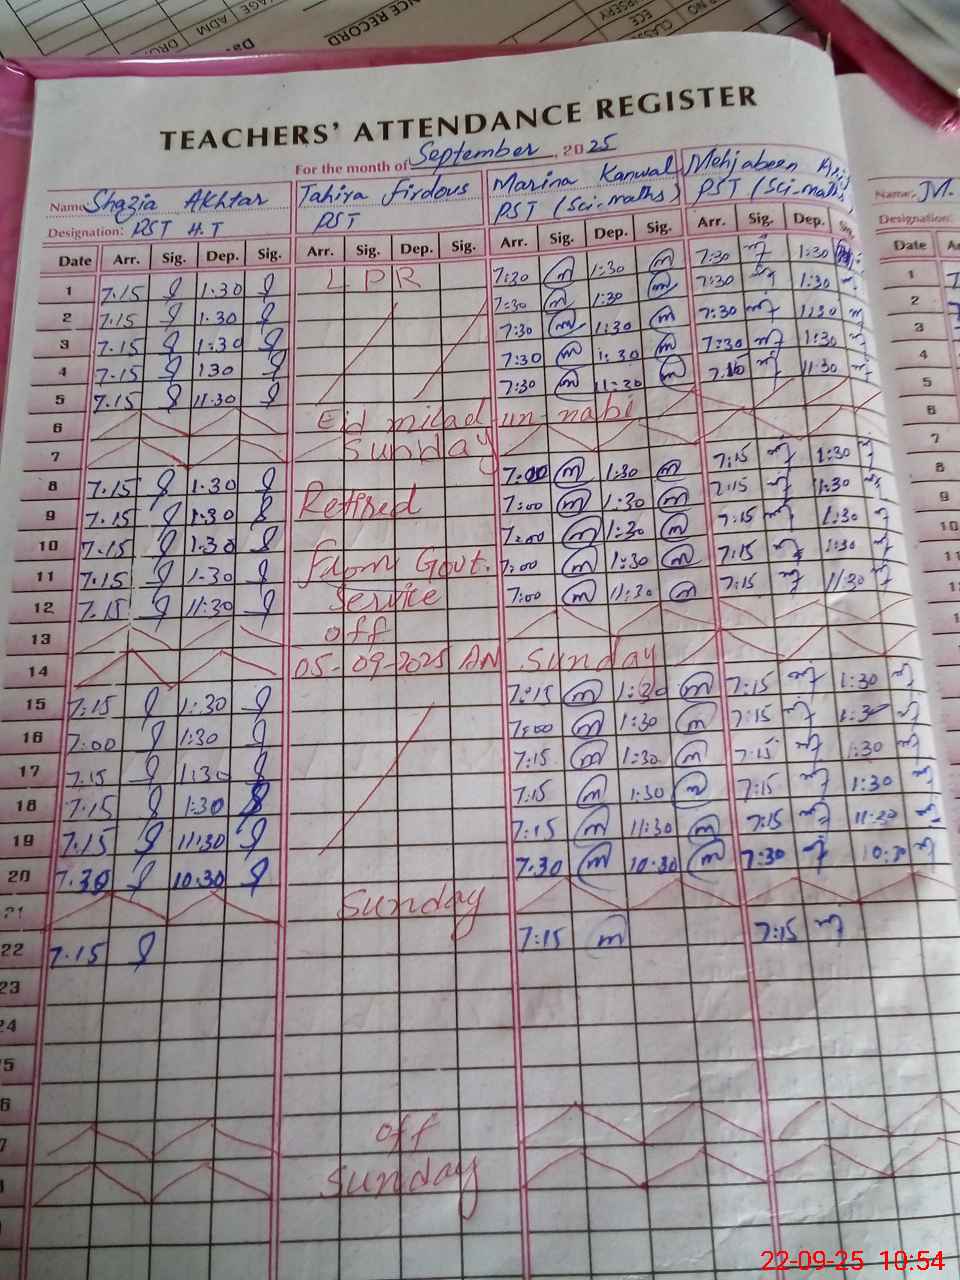 TEACHERS' ATTENDANCE REGISTER
For the month of September, 2025
Name Shazia Akhtar Tahira Firdous Marina Kanwal Mehjabeen Name: M.
Designation: PST H.T PST PST (Sci-maths) PST (Sci-maths) Designation:
Date Arr. Sig. Dep. Sig. Arr. Sig. Dep. Sig. Arr. Sig. Dep. Sig. Arr. Sig. Dep. Date
1 7.15 1.30 L P R 7:30 m 1:30 m 7:30 1:30 1
2 7.15 1.30 7:30 m 1:30 m 7:30 1:30 2
3 7.15 1:30 7:30 m 1:30 m 7:30 1:30 3
4 7.15 130 7:30 m 1:30 m 7:30 1:30 4
5 7.15 11.30 7:30 m 11:30 m 11:30 5
6 Eid milad-un-nabi 6
7 Sunday 7
8 7.15 1.30 7:00 m 1:30 m 7:15 1:30 8
9 7.15 1.30 Retired 7:00 m 1:30 m 7:15 1:30 9
10 7.15 1.30 7:00 m 1:30 m 7:15 1:30 10
11 7.15 1.30 from Govt. 7:00 m 1:30 m 7:15 1:30 11
12 7.15 11:30 Service 7:00 m 11:30 m 7:15 11:30
13 off
14 05-09-2025 AN Sunday
15 7:15 1:30 7:15 m 1:30 m 7:15 1:30
16 7:00 1:30 7:00 m 1:30 m 7:15 1:30
17 7.15 1:30 7:15 m 1:30 m 7:15 1:30
18 7:15 1:30 7:15 m 1:30 m 7:15 1:30
19 7:15 11:30 7:15 m 11:30 m 7:15 11:30
20 7.30 10.30 7:30 m 10:30 m 7:30 10:30
21 Sunday
22 7.15 7:15 m 7:15
23
24
5
6
7 off
Sunday
22-09-25 10:54